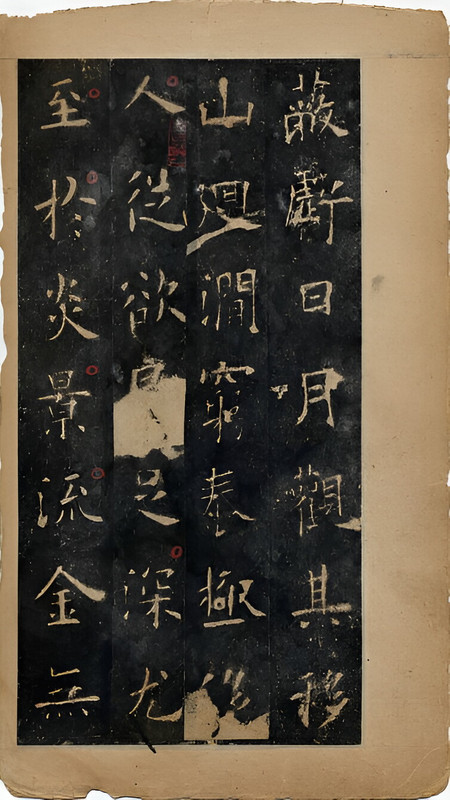 蔽虧日月觀其移
山迴澗窮泰極侈
人從欲良足深尤
至於炎景流金無